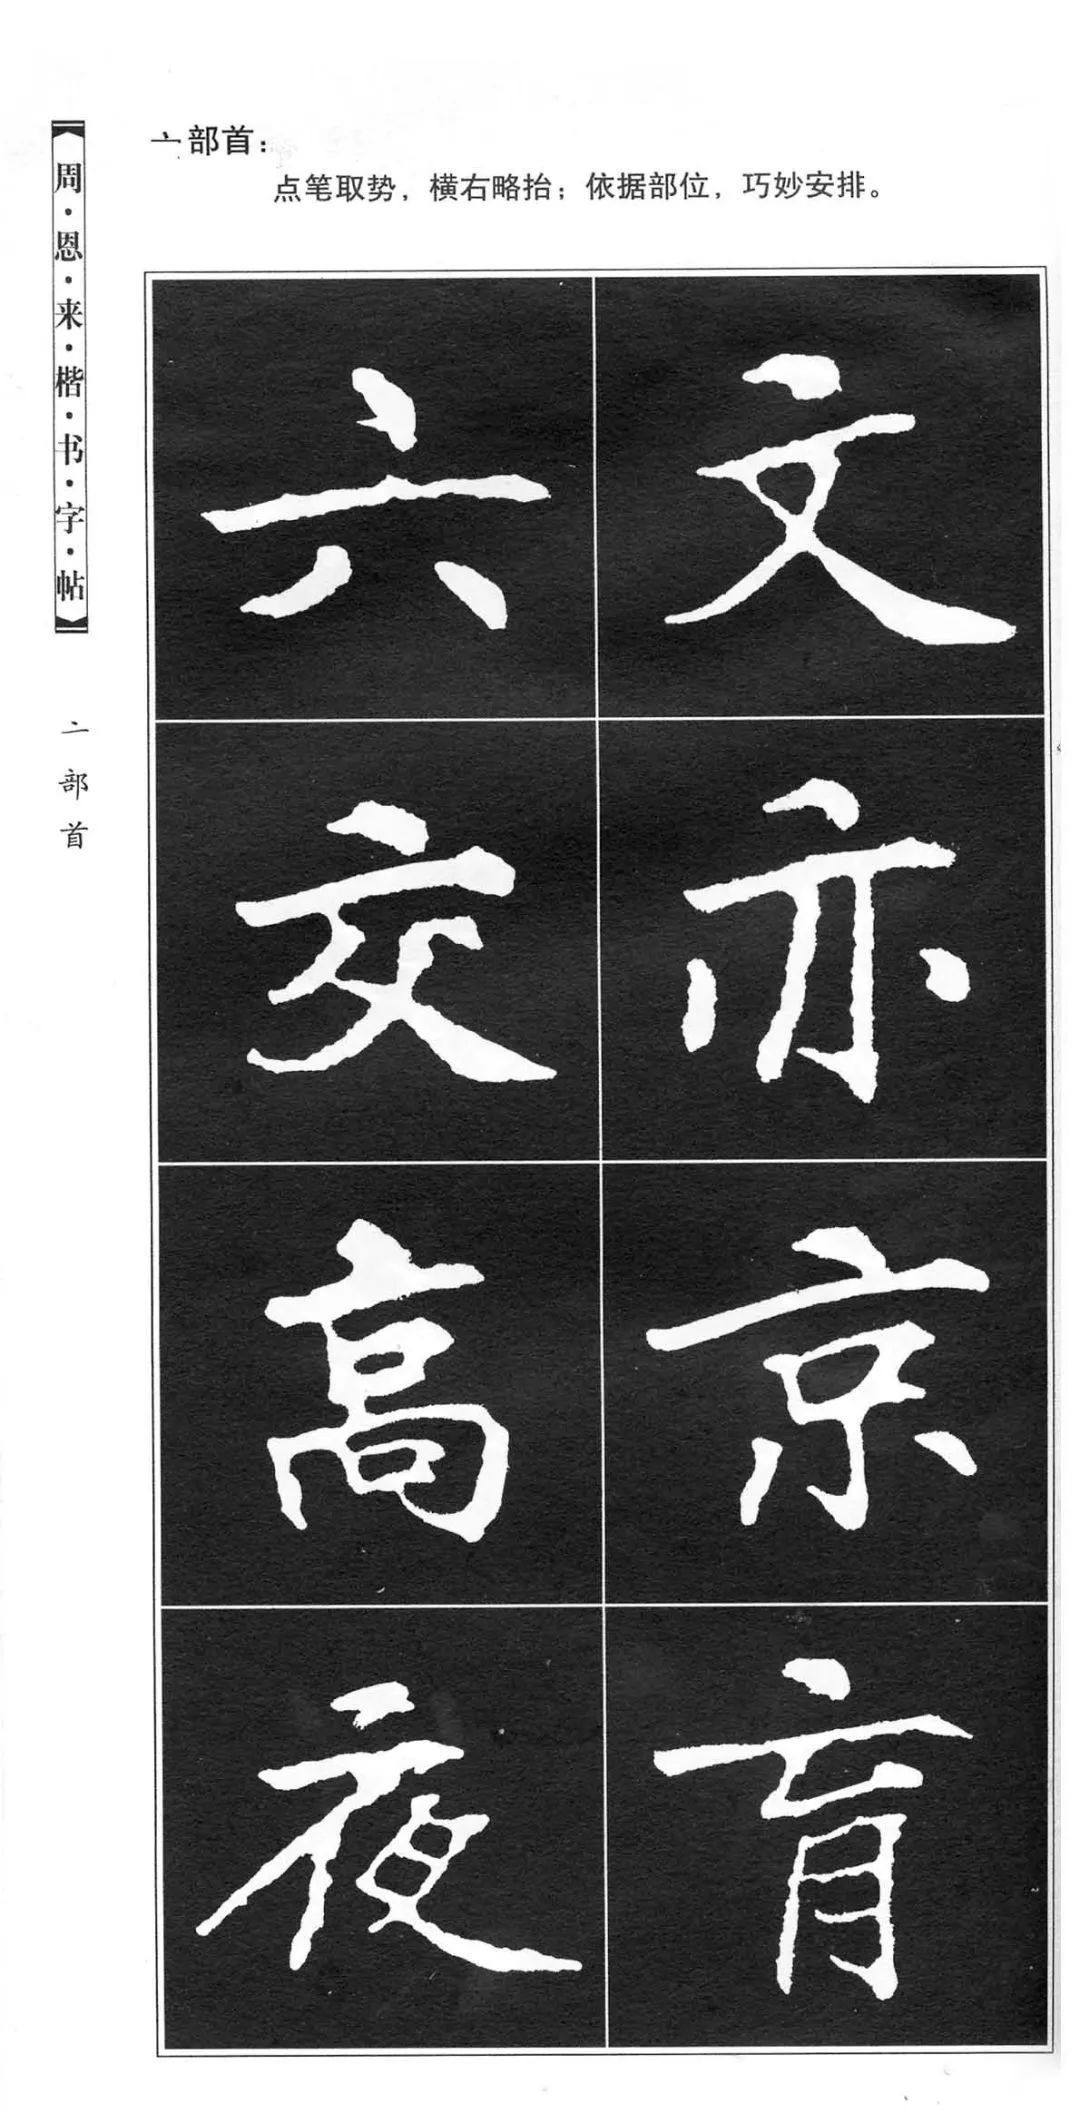 亠部首：
点笔取势，横右略抬；依据部位，巧妙安排。
周·恩·来·楷·书·字·帖
亠部首
六 文
交 亦
高 京
夜 育